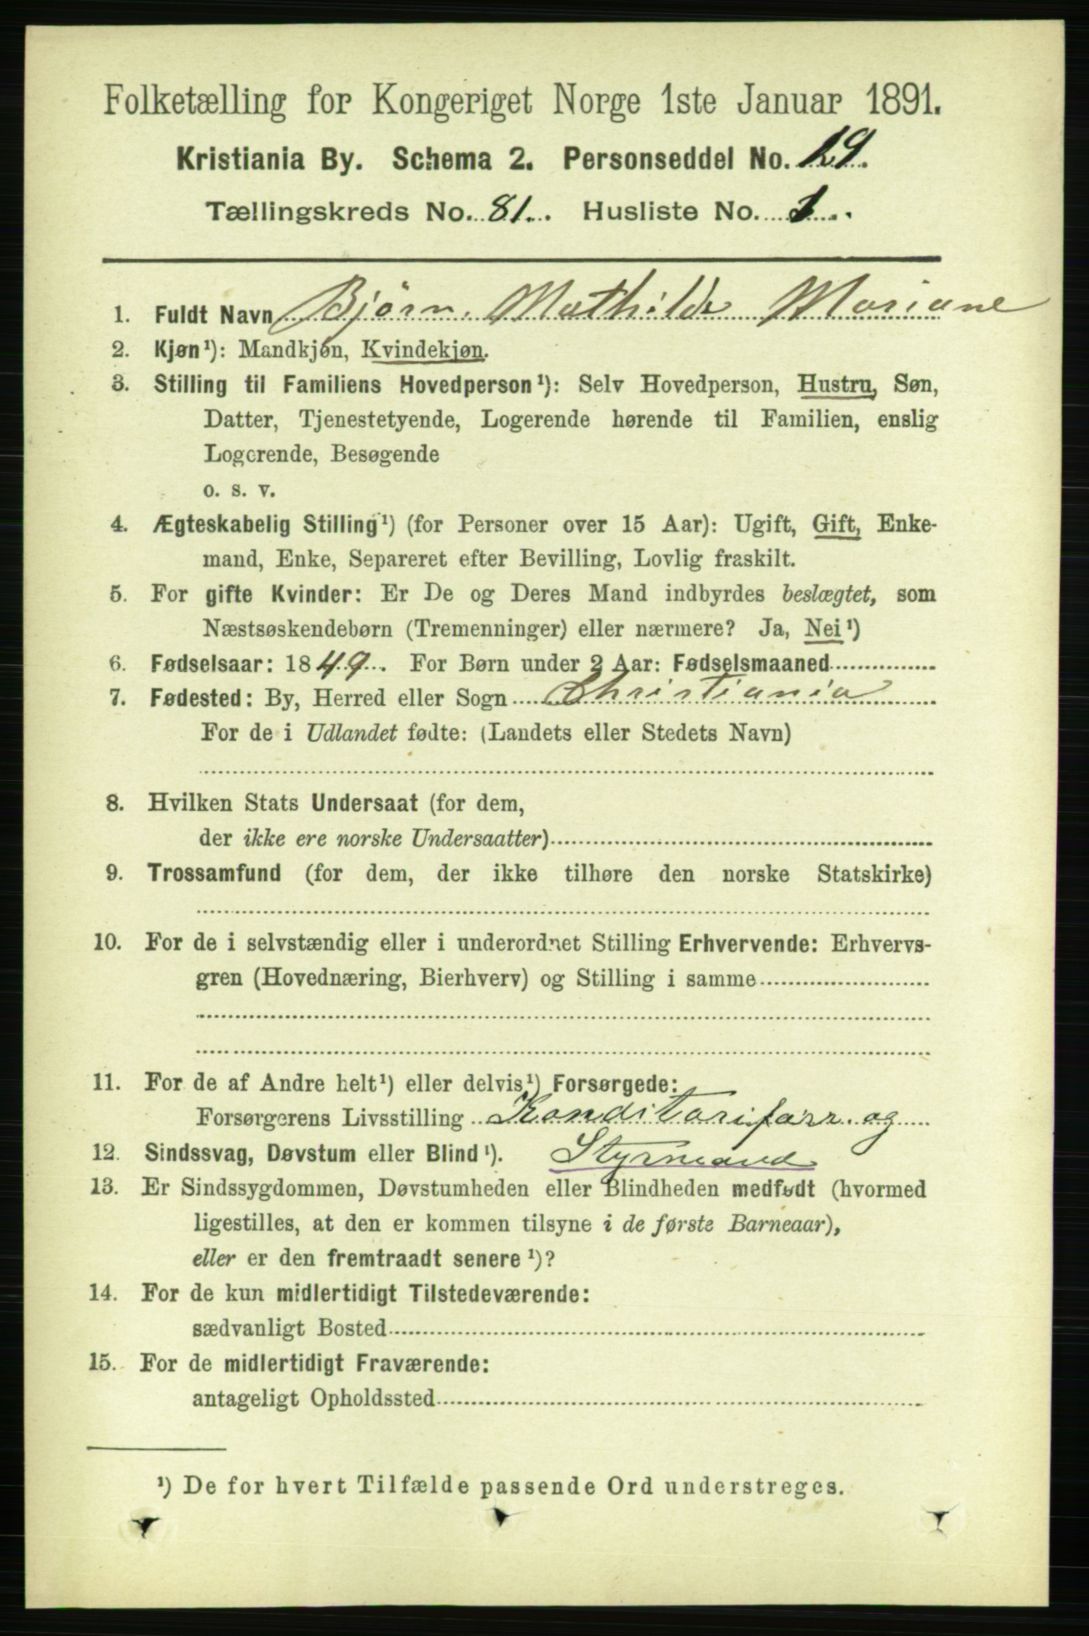 Folketælling for Kongeriget Norge 1ste Januar 1891.
Kristiania By. Schema 2. Personseddel No. 19.
Tællingskreds No. 81. Husliste No. 1.
1. Fuldt Navn Bjørn, Mathilde Mariane
2. Kjøn¹): Mandkjøn, Kvindekjøn.
3. Stilling til Familiens Hovedperson¹): Selv Hovedperson, Hustru, Søn,
Datter, Tjenestetyende, Logerende hørende til Familien, enslig
Logerende, Besøgende
o. s. v.
4. Ægteskabelig Stilling¹) (for Personer over 15 Aar): Ugift, Gift, Enke-
mand, Enke, Separeret efter Bevilling, Lovlig fraskilt.
5. For gifte Kvinder: Er De og Deres Mand indbyrdes beslægtet, som
Næstsøskendebørn (Tremenninger) eller nærmere? Ja, Nei¹)
6. Fødselsaar: 1849. For Børn under 2 Aar: Fødselsmaaned
7. Fødested: By, Herred eller Sogn Christiania
For de i Udlandet fødte: (Landets eller Stedets Navn)
8. Hvilken Stats Undersaat (for dem,
der ikke ere norske Undersaatter)
9. Trossamfund (for dem, der ikke tilhøre den norske Statskirke)
10. For de i selvstændig eller i underordnet Stilling Erhvervende: Erhvervs-
gren (Hovednæring, Bierhverv) og Stilling i samme
11. For de af Andre helt¹) eller delvis¹) Forsørgede:
Forsørgerens Livsstilling Konditoriforr. og
12. Sindssvag, Døvstum eller Blind¹). Styrmand
13. Er Sindssygdommen, Døvstumheden eller Blindheden medfødt (hvormed
ligestilles, at den er kommen tilsyne i de første Barneaar),
eller er den fremtraadt senere¹)?
14. For de kun midlertidigt Tilstedeværende:
sædvanligt Bosted
15. For de midlertidigt Fraværende:
antageligt Opholdssted
¹) De for hvert Tilfælde passende Ord understreges.